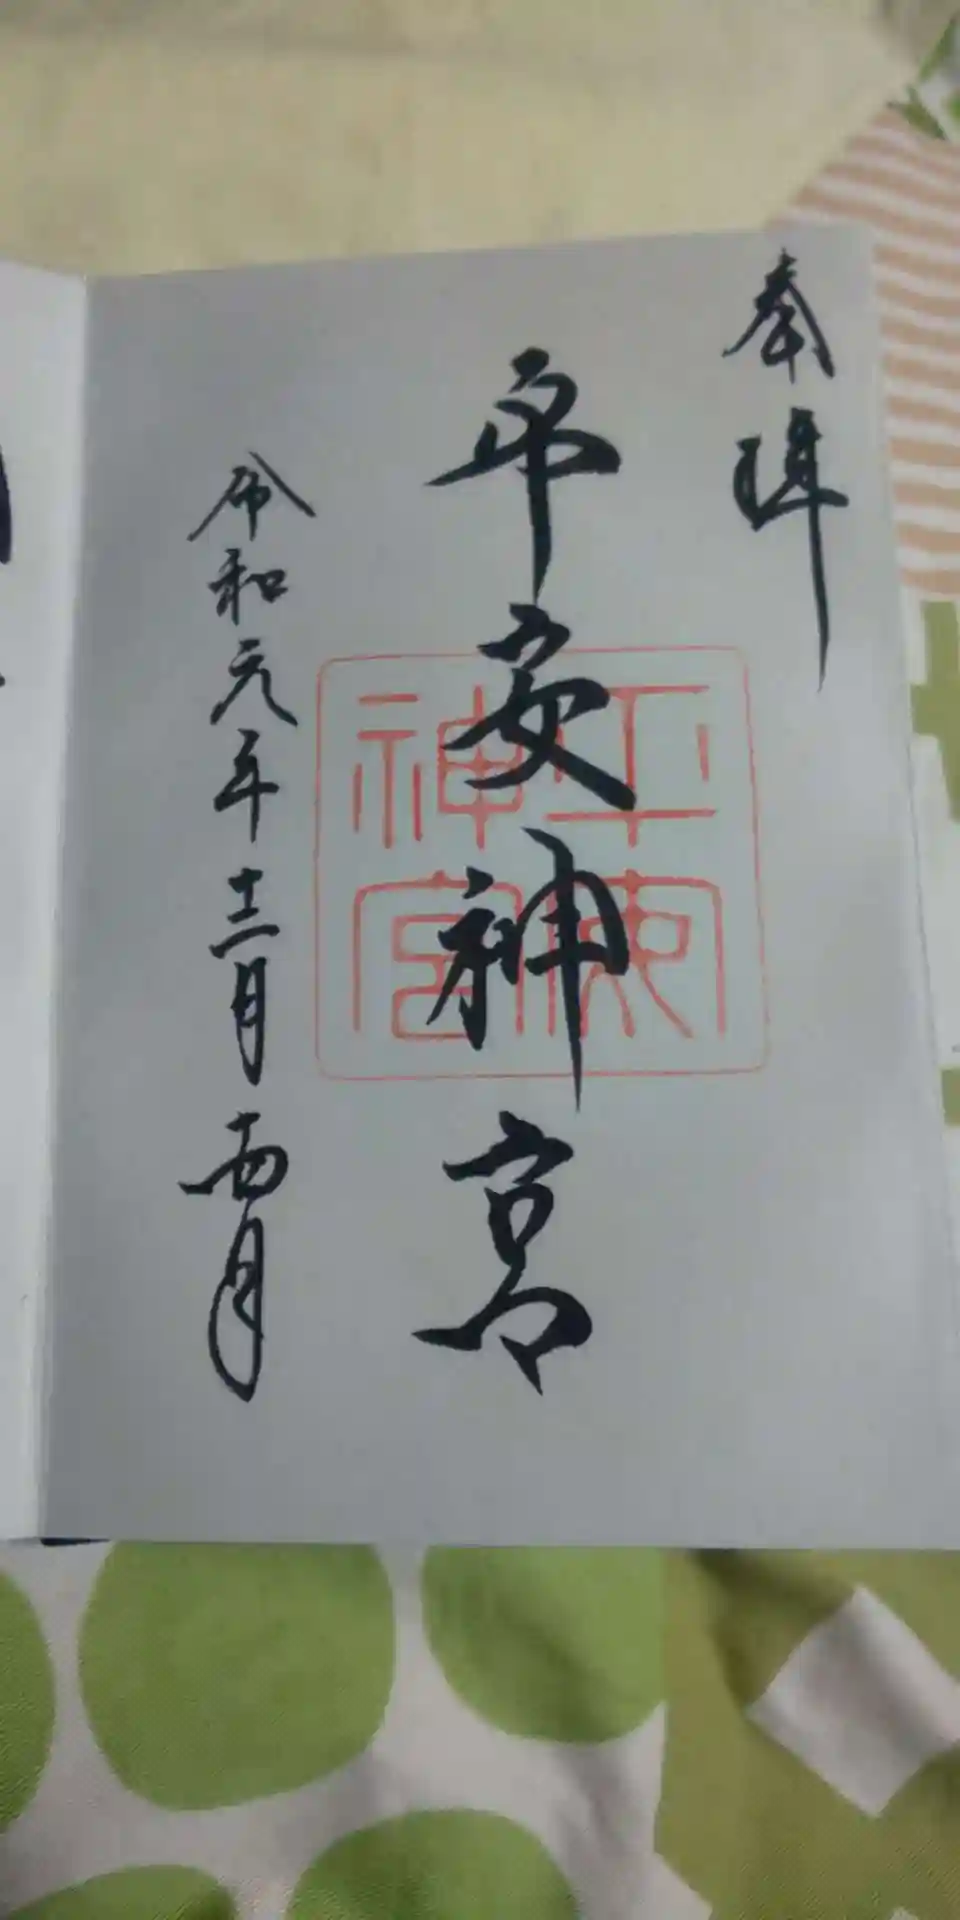 奉拝
平安神宮
令和元年十二月十四日
平安神宮